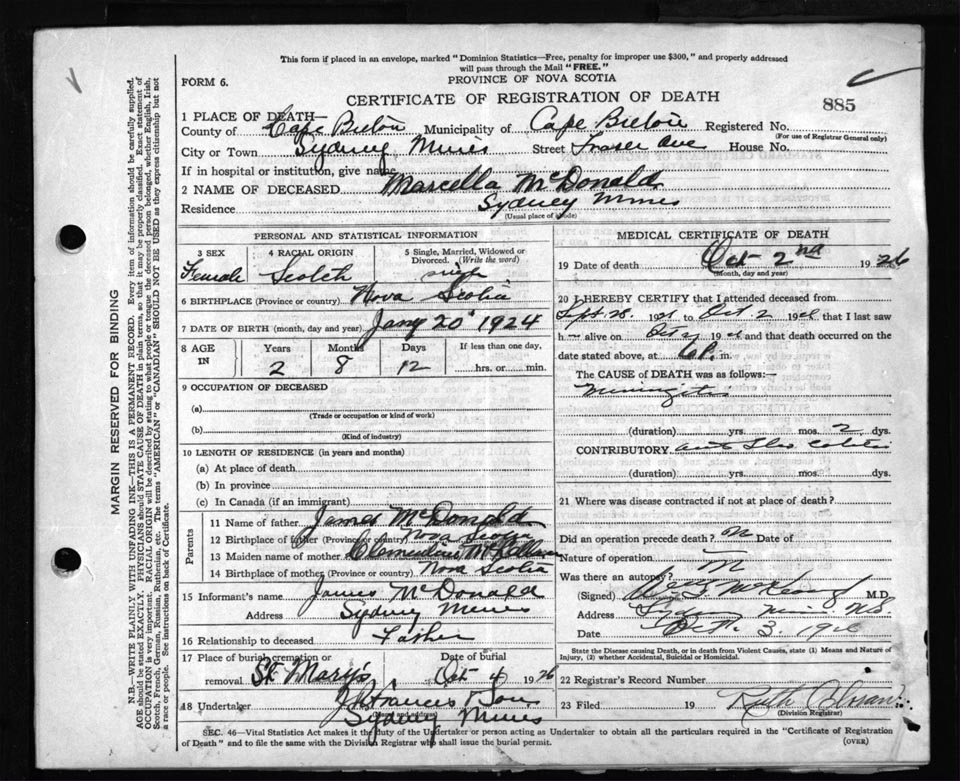 This form if placed in an envelope, marked "Dominion Statistics—Free, penalty for improper use $300," and properly addressed
will pass through the Mail "FREE."
FORM 6.
PROVINCE OF NOVA SCOTIA
CERTIFICATE OF REGISTRATION OF DEATH
885
1 PLACE OF DEATH—
County of Cape Breton Municipality of Cape Breton Registered No.
(For use of Registrar General only)
City or Town Sydney Mines Street Fraser Ave House No.
If in hospital or institution, give name
2 NAME OF DECEASED Marcella McDonald
Residence Sydney Mines
(Usual place of abode)
PERSONAL AND STATISTICAL INFORMATION
3 SEX 4 RACIAL ORIGIN 5 Single, Married, Widowed or Divorced. (Write the word)
Female Scotch single
6 BIRTHPLACE (Province or country) Nova Scotia
7 DATE OF BIRTH (month, day and year) Jany 20 1924
8 AGE IN Years Months Days If less than one day,
2 8 12 hrs. or min.
9 OCCUPATION OF DECEASED
(a)
(Trade or occupation or kind of work)
(b)
(Kind of industry)
10 LENGTH OF RESIDENCE (in years and months)
(a) At place of death
(b) In province
(c) In Canada (if an immigrant)
Parents
11 Name of father James McDonald
12 Birthplace of father (Province or country) Nova Scotia
13 Maiden name of mother Clementine
14 Birthplace of mother (Province or country) Nova Scotia
15 Informant's name James McDonald
Address Sydney Mines
16 Relationship to deceased Father
17 Place of burial, cremation or removal St. Mary's Date of burial Oct 4 1926
18 Undertaker J. Francis & Son
Sydney Mines
MEDICAL CERTIFICATE OF DEATH
19 Date of death Oct 2nd 1926
(Month, day and year)
20 I HEREBY CERTIFY that I attended deceased from
Sept. 28. 19 to Oct. 2 19 that I last saw
h alive on Oct 2 19 and that death occurred on the
date stated above, at 6 P. m.
The CAUSE of DEATH was as follows:—
(duration) yrs. mos. 2 dys.
CONTRIBUTORY
(duration) yrs. mos. dys.
21 Where was disease contracted if not at place of death?
Did an operation precede death? Date of
Nature of operation
Was there an autopsy?
(Signed) M.D.
Address Sydney Mines N.S.
Date Oct. 3. 1926
State the Disease causing Death, or in death from Violent Causes, state (1) Means and Nature of
Injury, (2) whether Accidental, Suicidal or Homicidal.
22 Registrar's Record Number
23 Filed 19 Ruth
(Division Registrar)
SEC. 46—Vital Statistics Act makes it the duty of the Undertaker or person acting as Undertaker to obtain all the particulars required in the "Certificate of Registration
of Death" and to file the same with the Division Registrar who shall issue the burial permit.
(OVER)
MARGIN RESERVED FOR BINDING
N.B. WRITE PLAINLY WITH UNFADING INK—THIS IS A PERMANENT RECORD. Every item of information should be carefully supplied.
AGE should be stated EXACTLY. PHYSICIANS should STATE CAUSE OF DEATH in plain terms, so that it may be properly classified. Exact statement of
OCCUPATION is very important. RACIAL ORIGIN will be described by stating to what people or tongue the deceased person belonged, whether English, Irish,
Scotch, French, German, Russian, Ruthenian, etc. The terms "AMERICAN" or "CANADIAN" SHOULD NOT BE USED as they express citizenship but not
a race or people. See instructions on back of Certificate.